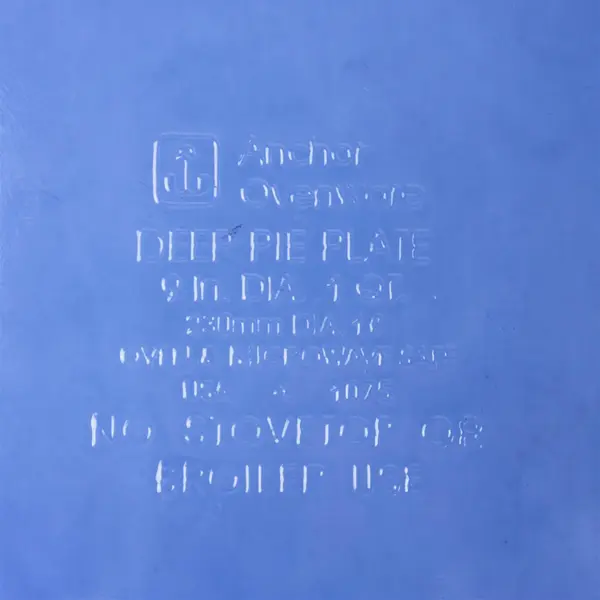 Anchor
Ovenware
DEEP PIE PLATE
9 In. DIA. 1 QT.
230mm DIA. 1
OVEN & MICROWAVE SAFE
USA 1075
NO STOVETOP OR
BROILER USE